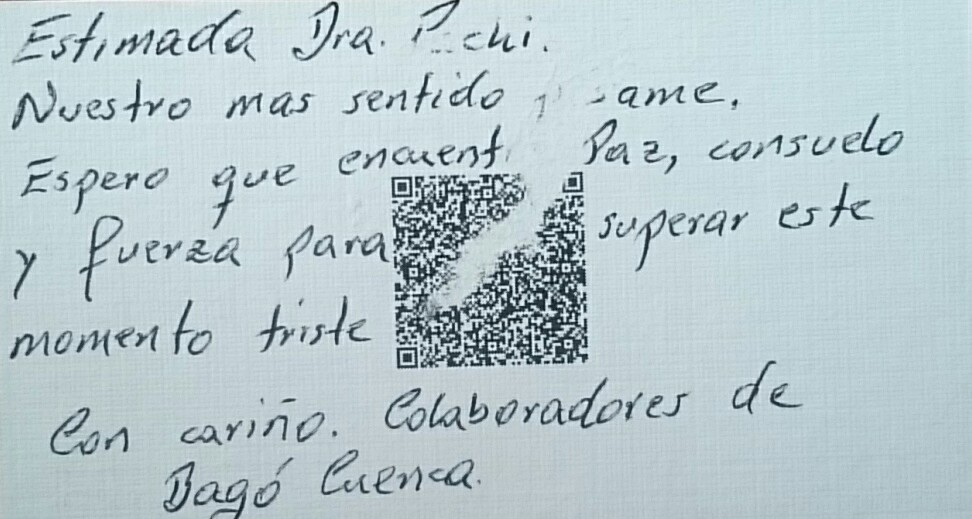 Estimada Dra.
Nuestro mas sentido
Espero que Paz, consuelo
y fuerza para superar este
momento triste
Con cariño. Colaboradores de
Bagó Cuenca.